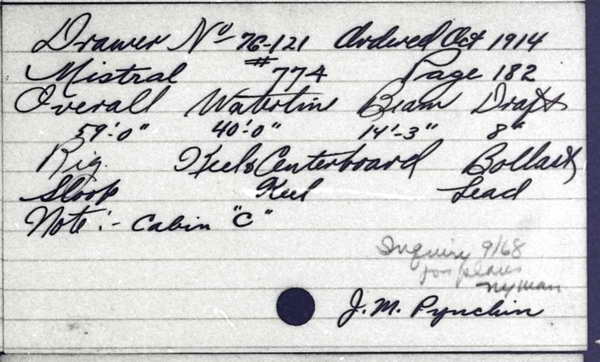 Drawer No 76-121 Ordered Oct 1914
Mistral #774 Page 182
Overall Waterlin Beam Draft
59'-0" 40'-0" 14'-3" 8"
Rig. Keel & Centerboard Ballast
Sloop Keel Lead
Note:- Cabin "C"
Inquiry 9/68
for plans
Nyman
J. M. Pynchin